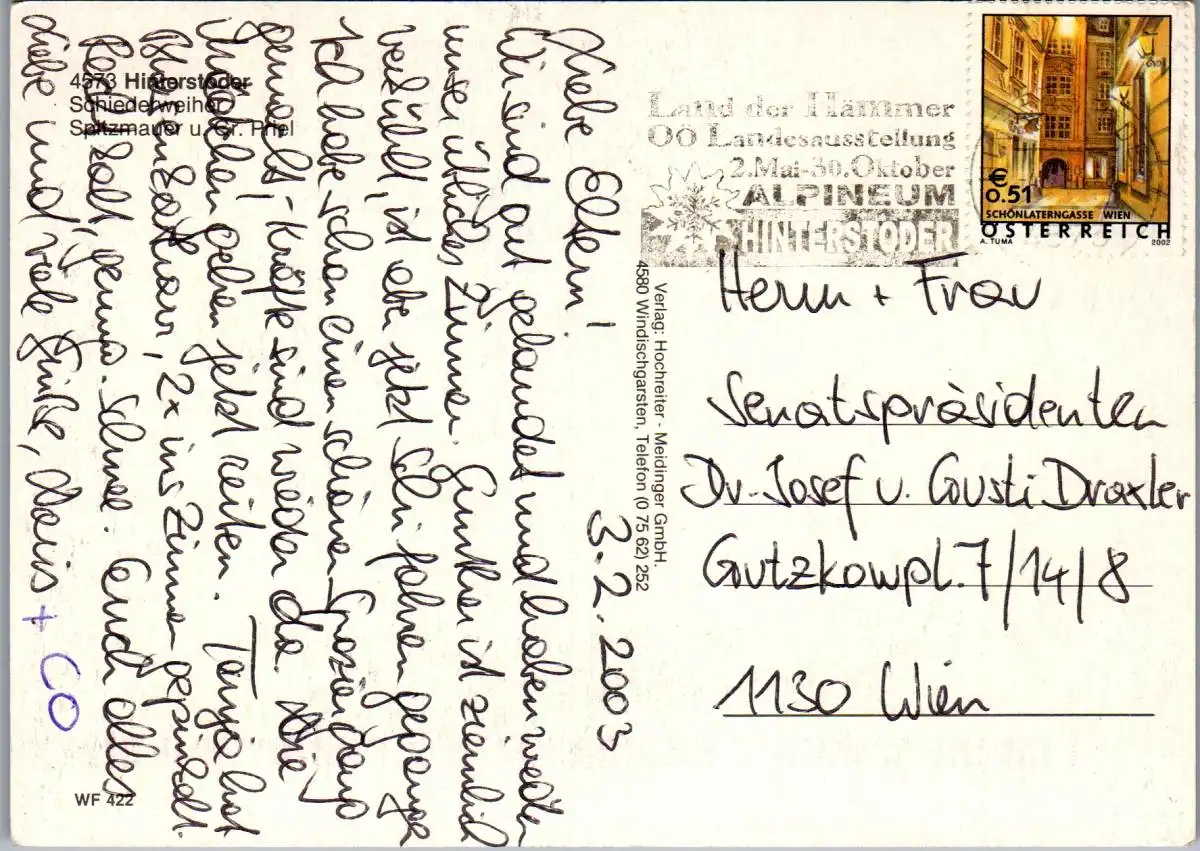 4573 Hinterstoder
Schiederweiher
Spitzmauer u. Gr. Priel
3.2.2003
Liebe Eltern!
Wir sind gut gelandet und haben wieder
unser übliches Zimmer. Gunther ist ziemlich
verkühlt, ist aber jetzt Schi fahren gegangen
Ich habe schon einen schönen Spaziergang
gemacht, Kräfte sind wieder da. Die
Mädchen gehen jetzt reiten. Tanja hat
2x ins Zimmer gepinkelt.
kalt, genug Schnee. Euch alles
Liebe und viele Grüße, Doris + CO
WF 422
Verlag: Hochreiter - Meidinger GmbH.
4580 Windischgarsten, Telefon (0 75 62) 252
Land der Hämmer
OÖ Landesausstellung
2.Mai-30.Oktober
ALPINEUM
HINTERSTODER
€
0.51
SCHÖNLATERNGASSE WIEN
ÖSTERREICH
A. TUMA 2002
Herrn + Frau
Senatspräsidenten
Dr. Josef u. Gusti Draxler
Gutzkowpl. 7/14/8
1130 Wien